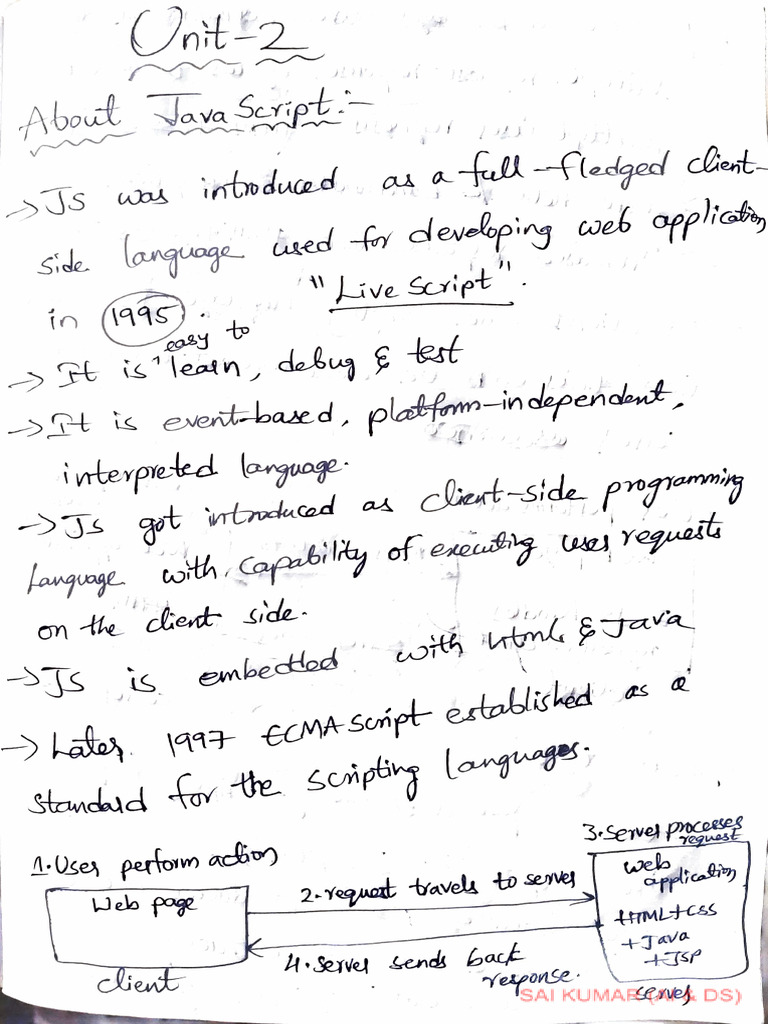 Unit-2
About JavaScript:-
→ JS was introduced as a full-fledged client-
side language used for developing web application
in 1995. "Live Script".
→ It is easy to learn, debug & test
→ It is event-based, platform-independent,
interpreted language.
→ JS got introduced as client-side programming
language with capability of executing user requests
on the client side.
→ JS is embedded with HTML & Java
→ Later 1997 ECMA Script established as a
standard for the scripting languages.
1. User perform action
3. Server processes
request
Web page
2. request travels to server
web
application
+HTML+CSS
+Java
+JSP
4. Server sends back
response.
client
server
SAI KUMAR (AI & DS)